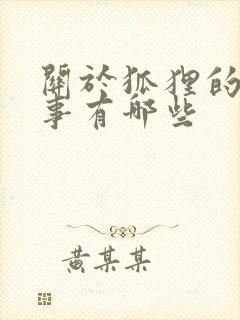 關於狐狸的
事有哪些
黃某某